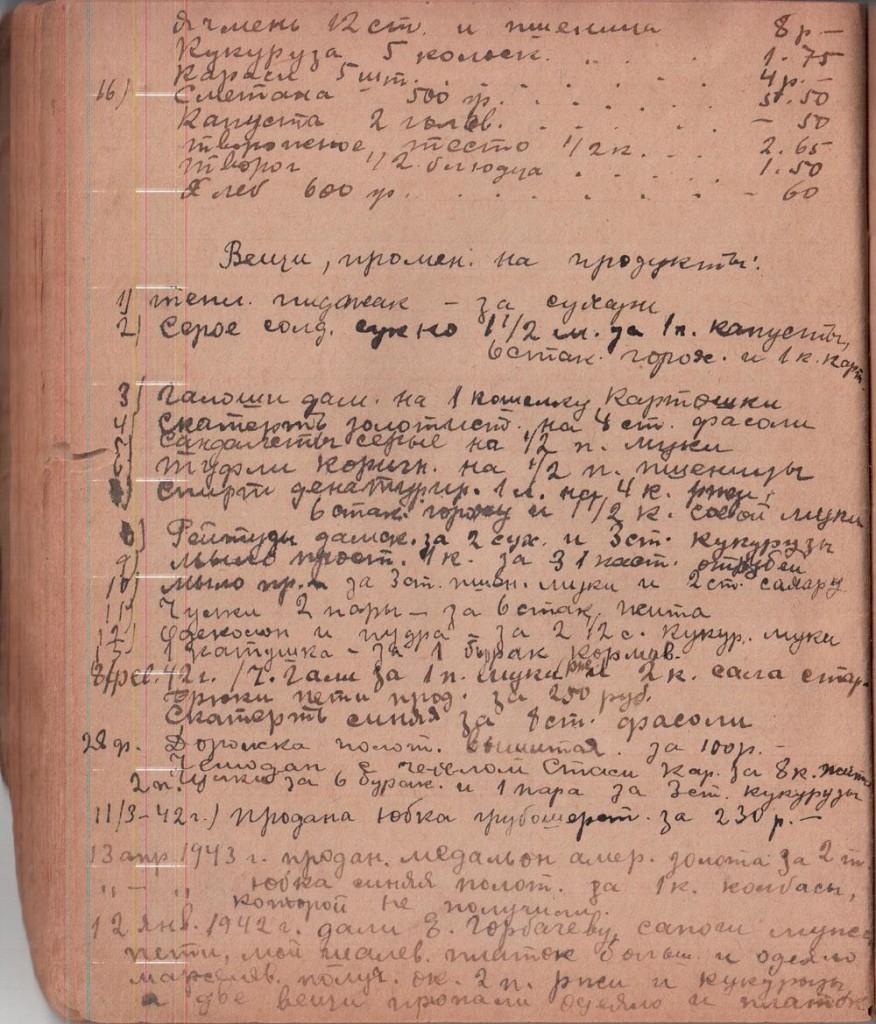 Ячмень 12 ст. и пшеница 8 р –
Кукуруза 5 колоск. . . 1.75
Караси 5 шт. . . . . 4 р. –
16) Сметана – 500 гр. . . . . 50
Капуста 2 голов. . . . . – 50
творожное тесто 1/2 к. . . 2.65
творог 1/2 блюдца . . . 1.50
Хлеб 600 гр. . . . . . – 60
Вещи, промен. на продукты:
1) тепл. пиджак – за сухари
2) Серое солд. сукно 1 1/2 м. за 1 п. капусты,
6 стак. горох. и 1 к. карт.
3) Галоши дам. на 1 кошелку картошки
4) Скатерть золотист. на 4 ст. фасоли
сандалеты серые на 1/2 п. муки
туфли коричн. на 1/2 п. пшеницы
спирт денатурир. 1 л. на 4 к. ржи,
6 стак. гороху и 1 1/2 к. соевой муки
8) Рейтузы дамск. за 2 сух. и 3 ст. кукурузы
9) мыло прост. 1 к. за 3 1 каст. отрубей
10) мыло пр. за 3 ст. пшен. муки и 2 ст. сахару
11) Чулки 2 пары – за 6 стак. жита
12) Одеколон и пудра – за 2 1/2 с. кукур. муки
1 катушка – за 1 бурак кормов.
8/фев. 42 г. /Т. Гали за 1 п. муки и 2 к. сала стар.
Брюки пети прод. за 250 руб.
Скатерть синяя за 8 ст. фасоли
28 ф. Дорожка полот. вышитая за 100 р. –
Чемодан с чехлом Стаси кар. за 8 к.
2 п. Чулки за 6 бурак. и 1 пара за 3 ст. кукурузы
11/3–42 г.) продана юбка грубошерст. за 230 р. –
13 апр 1943 г. продан. медальон амер. золота за 2 т.
„ – „ юбка синяя полот. за 1 к. колбасы,
которой не получили.
12 янв. 1942 г. дали Горбачеву, сапоги мужс
пети, мой шалев. платок больш. и одеяло
марселев. получ. ок. 2 п. ржи и кукурузы,
а две вещи пропали одеяло и платок